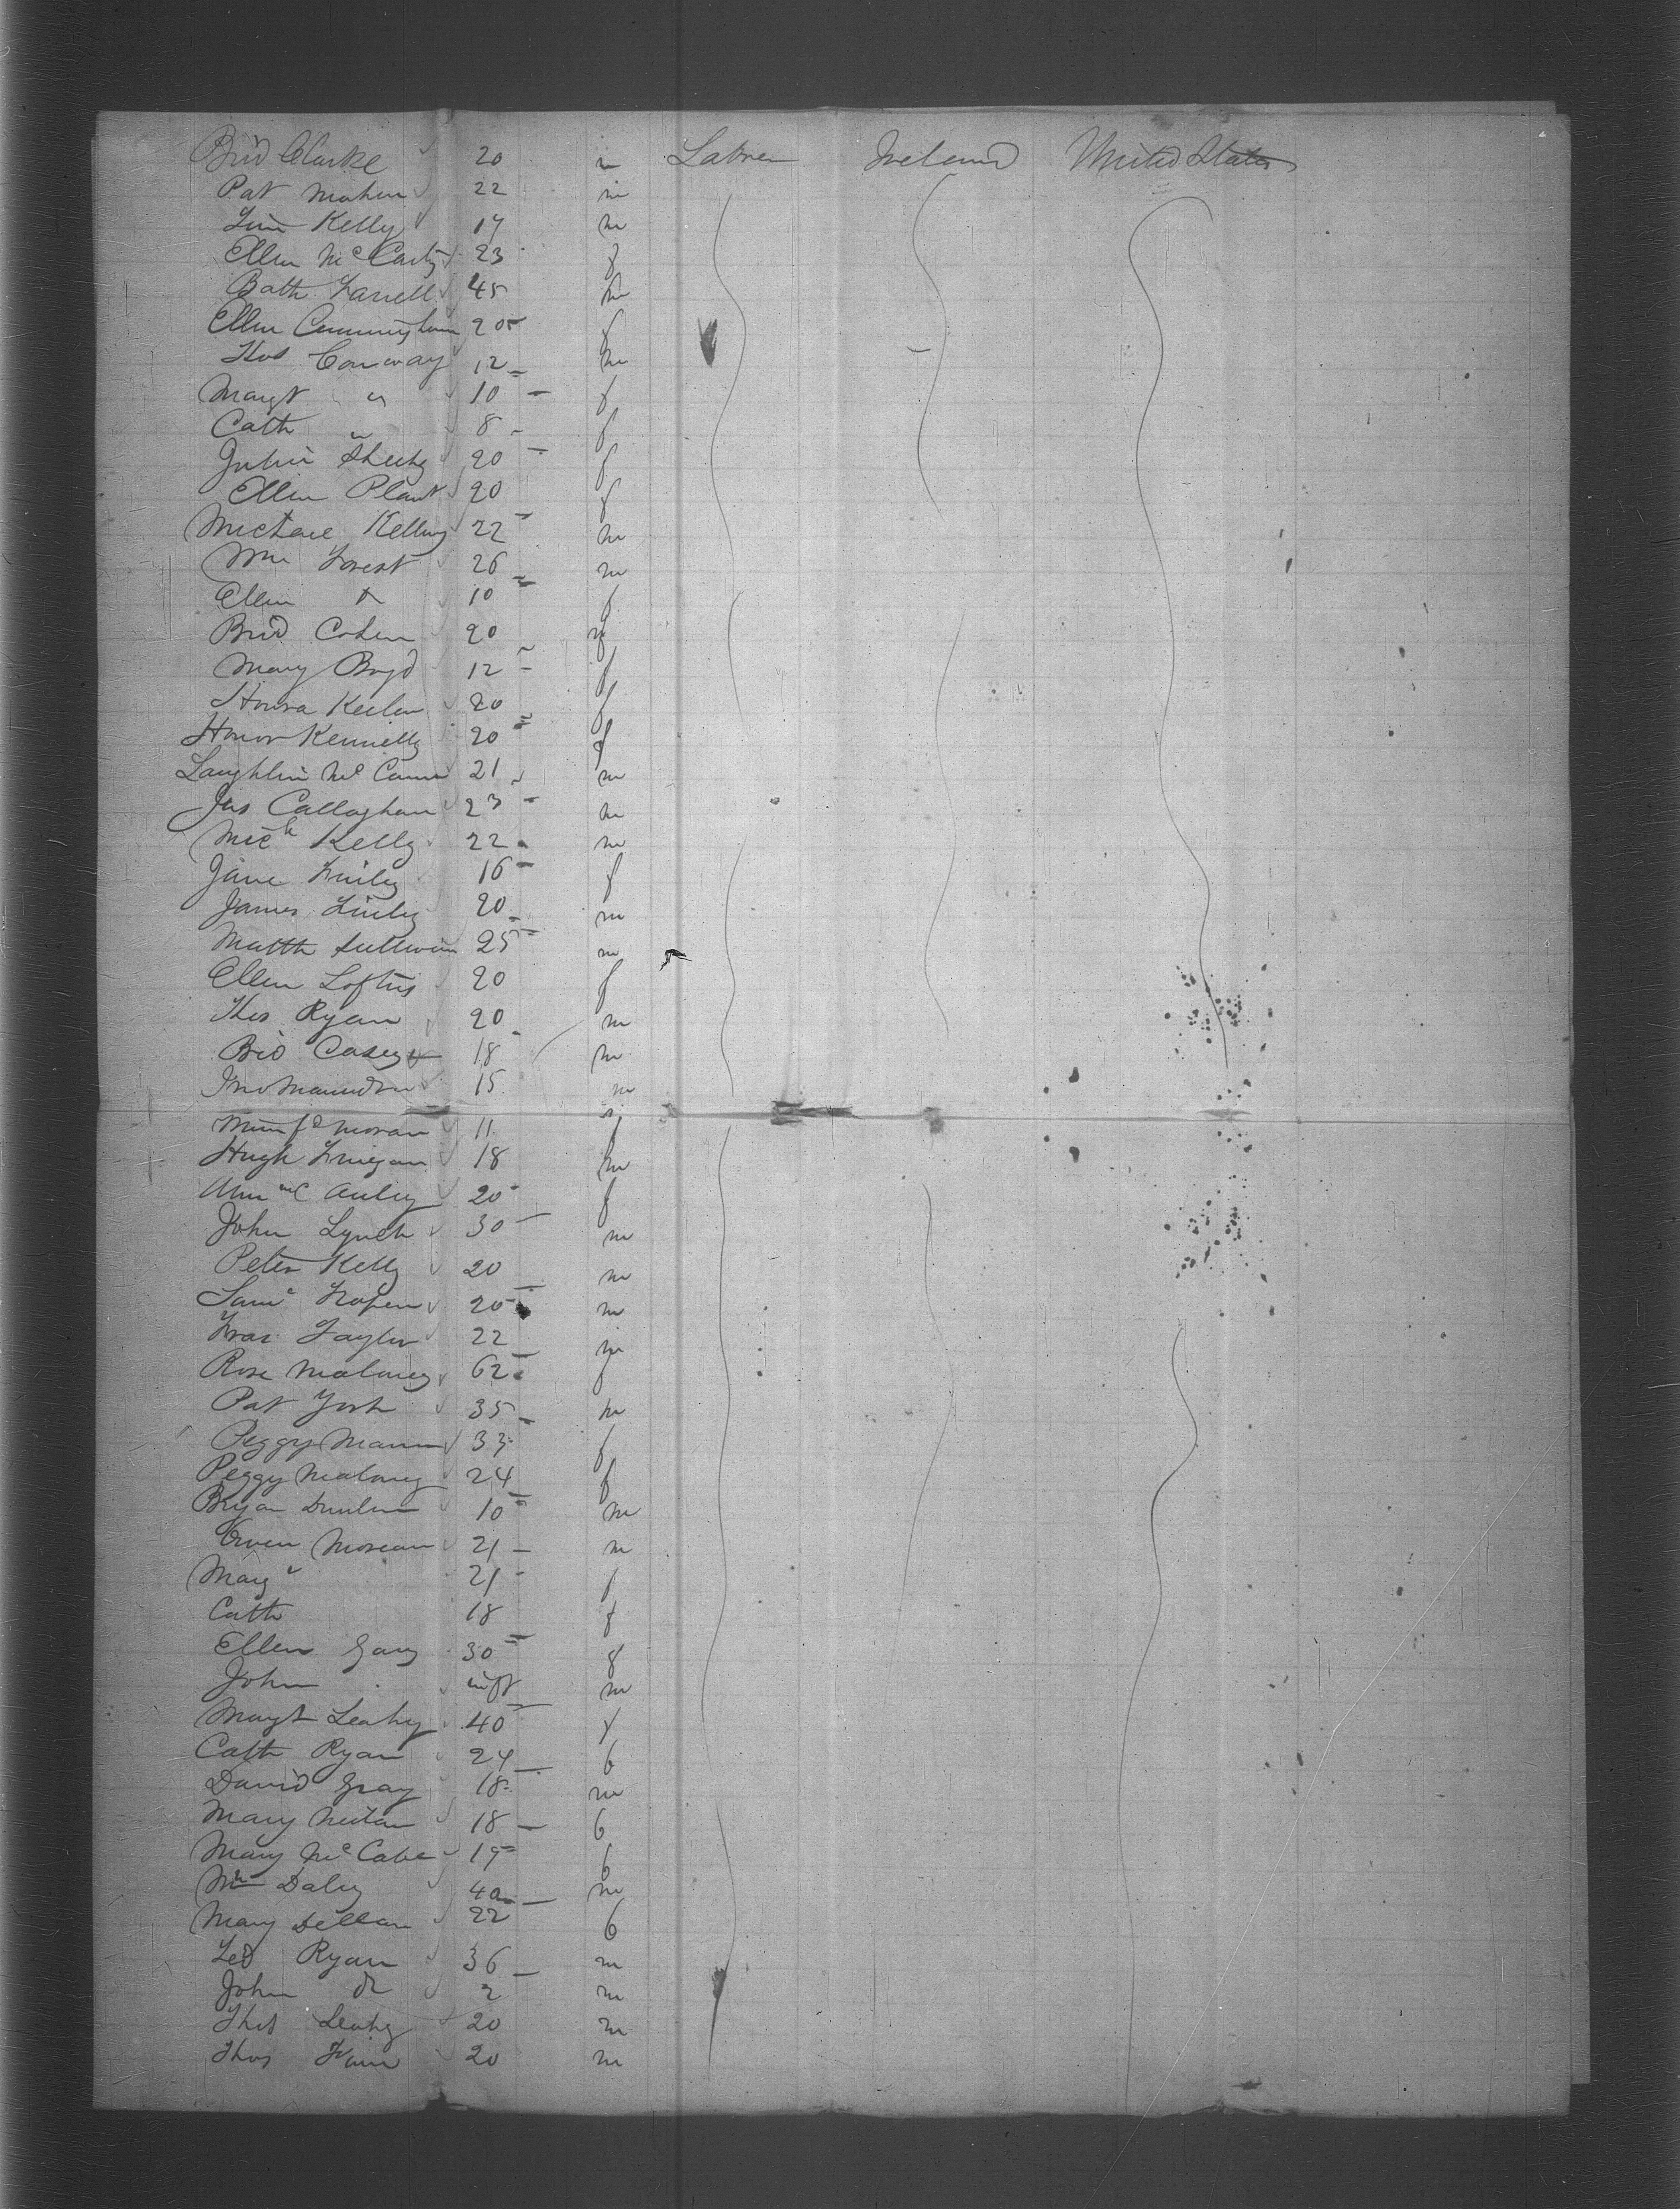 Brid Clarke 20 m Labrer Ireland United States
Pat Mahon 22 m
Tim Kelly 17 m
Ellen McCarty 23 f
Bath Farrell 45 m
Ellen Cunningham 20 f
Thos Conway 12 m
Margt " 10 f
Cath " 8 f
Julia Sheehy 20 f
Ellen Plant 20 f
Michael Kelling 22 m
Wm Forest 26 m
Ellen Do 10 f
Brid 20 f
Mary Boyd 12 f
Honra 20 f
Honor Kennelly 20 f
Laughlin McCann 21 m
Jas Callaghan 23 m
Mich Kelly 22 m
Jane Finley 16 f
James Finley 20 m
Matth Sullivan 25 m
Ellen Loftus 20 f
Thos Ryan 20 m
Brd Casey 18 m
Jno 15 m
Moran 11 f
Hugh Finigan 18 m
Ann McAuley 20 f
John Lynch 30 m
Peter Kelly 20 m
Saml 20 m
Fras Taylor 22 m
Rose Maloney 62 f
Pat York 35 m
Peggy Mann 33 f
Peggy Maloney 24 f
Bryan 10 m
Owen Morean 21 m
Mary " 21 f
Cath 18 f
Ellen Gary 30 f
John inft m
Margt Leahy 40 f
Cath Ryan 24 f
David Gray 18 m
Mary 18 f
Mary McCabe 19 f
Daley 40 m
Mary Dellan 22 f
Ted Ryan 36 m
John Do 2 m
Thos Leahy 20 m
Thos 20 m